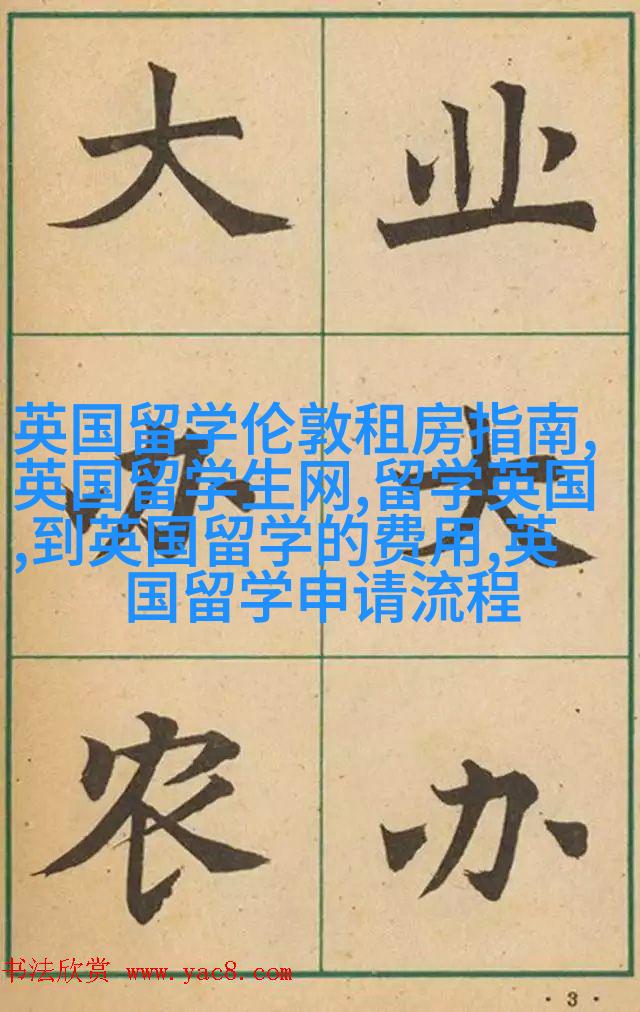 大 业
办 大
英国留学伦敦租房指南,
英国留学生网,留学英国
,到英国留学的费用,英
国留学申请流程
农 办
书法欣赏 www.yac8.com
·3·